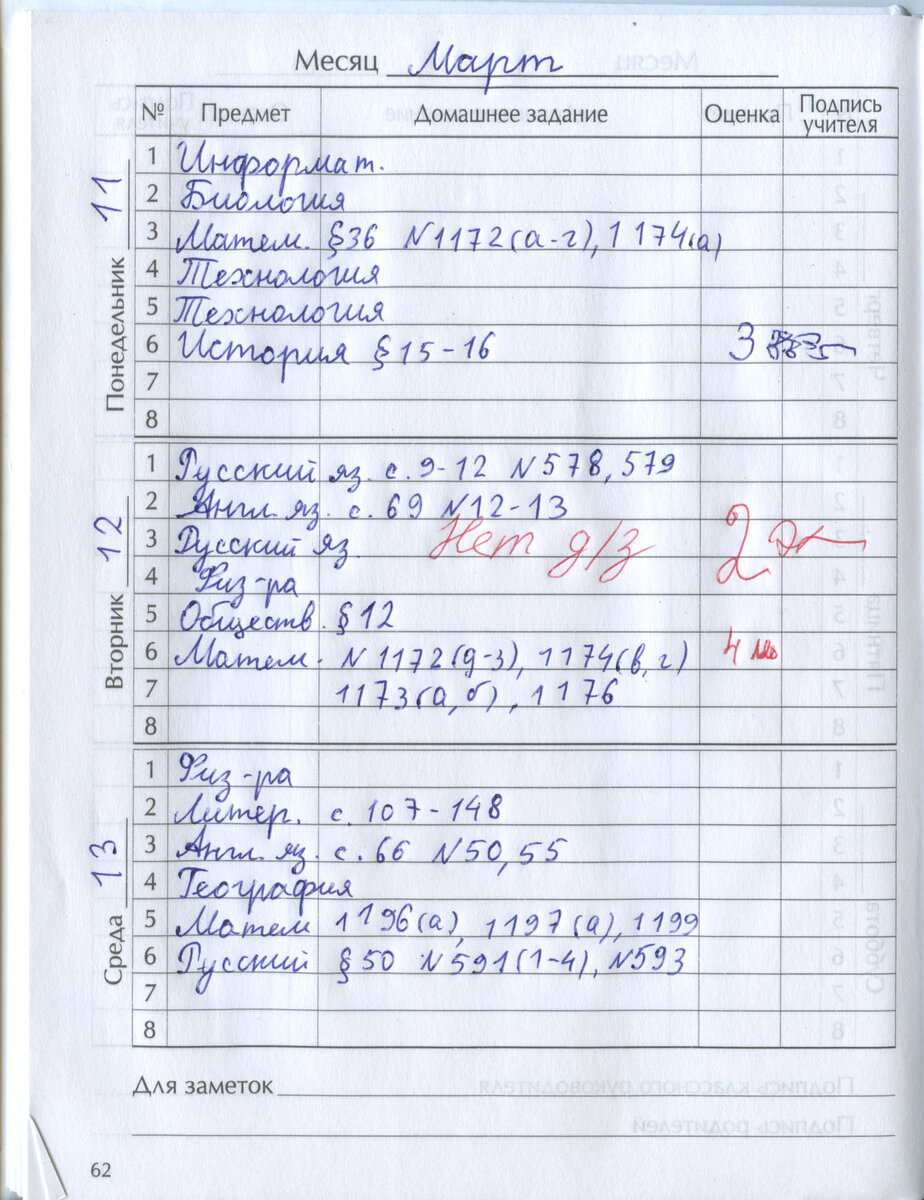 Месяц Март
№ Предмет Домашнее задание Оценка Подпись учителя
Понедельник 11
1 Информат.
2 Биология
3 Матем. §36 N1172(а-г), 1174(а)
4 Технология
5 Технология
6 История §15-16 3
7
8
Вторник 12
1 Русский яз. с. 9-12 N578, 579
2 Англ. яз. с. 69 N12-13
3 Русский яз. Нет д/з 2
4 Физ-ра
5 Обществ. §12
6 Матем. N1172(д-з), 1174(в, г) 4
7 1173(а, б), 1176
8
Среда 13
1 Физ-ра
2 Литер. с. 107-148
3 Англ. яз. с. 66 N50, 55
4 География
5 Матем 1196(а), 1197(а), 1199
6 Русский §50 N591(1-4), N593
7
8
Для заметок
62